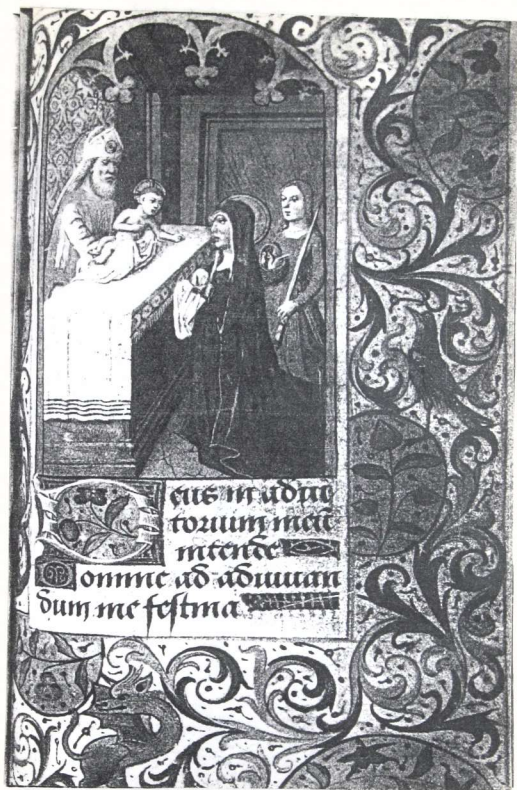 Deus in adiu
torium meū
intende
Domine ad adiuuan
dum me festina